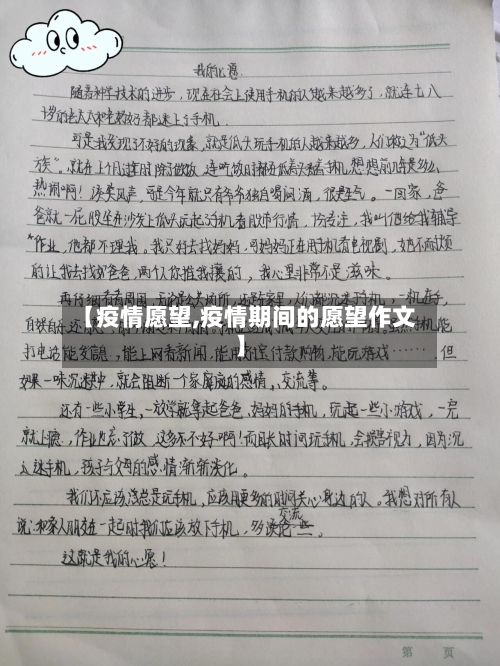 我的心愿
随着科学技术的进步，现在社会上使用手机的人越来越多了，就连七八
十岁的老人和老教授都迷上了手机
可是我发现了不好的现象，就是低头玩手机的人越来越多，人们称之为“低头
族”。就在上个月过年时除了做饭，连吃饭时都低着头看手机，想想前几年是多么
热闹啊！谈笑风声，可是今年就只有爷爷独自喝闷酒，很是生气。一回家，爸
爸就一屁股坐在沙发上低头玩起了手机看股市行情，十分专注，我叫他给我辅导
作业，他都不理我。我只好去找妈妈，可妈妈正在用手机看电视剧，她不耐烦
的让我去找爸爸，两个人你推我攘的，我心里非常不是滋味。
再仔细看看周围，
【疫情愿望,疫情期间的愿望作文
】
打电话能发信息，能上网看新闻，能用付款购物，能玩游戏……，但
如果一味沉迷其中，就会阻断一个家庭的感情，交流等。
还有一些小学生，一放学就拿起爸爸、妈妈的手机，玩起一些小游戏，一完
就上瘾，作业也忘了做，这多不好啊！而且长时间玩手机，会损害视力，因为沉
迷手机，孩子与父母的感情渐渐淡化。
我们不应该总是玩手机，应该用更多的时间关心身边的人。我想对所有人
说：和家人朋友在一起时我们应该放下手机，多谈论交流一些。
这就是我的心愿！
第 页